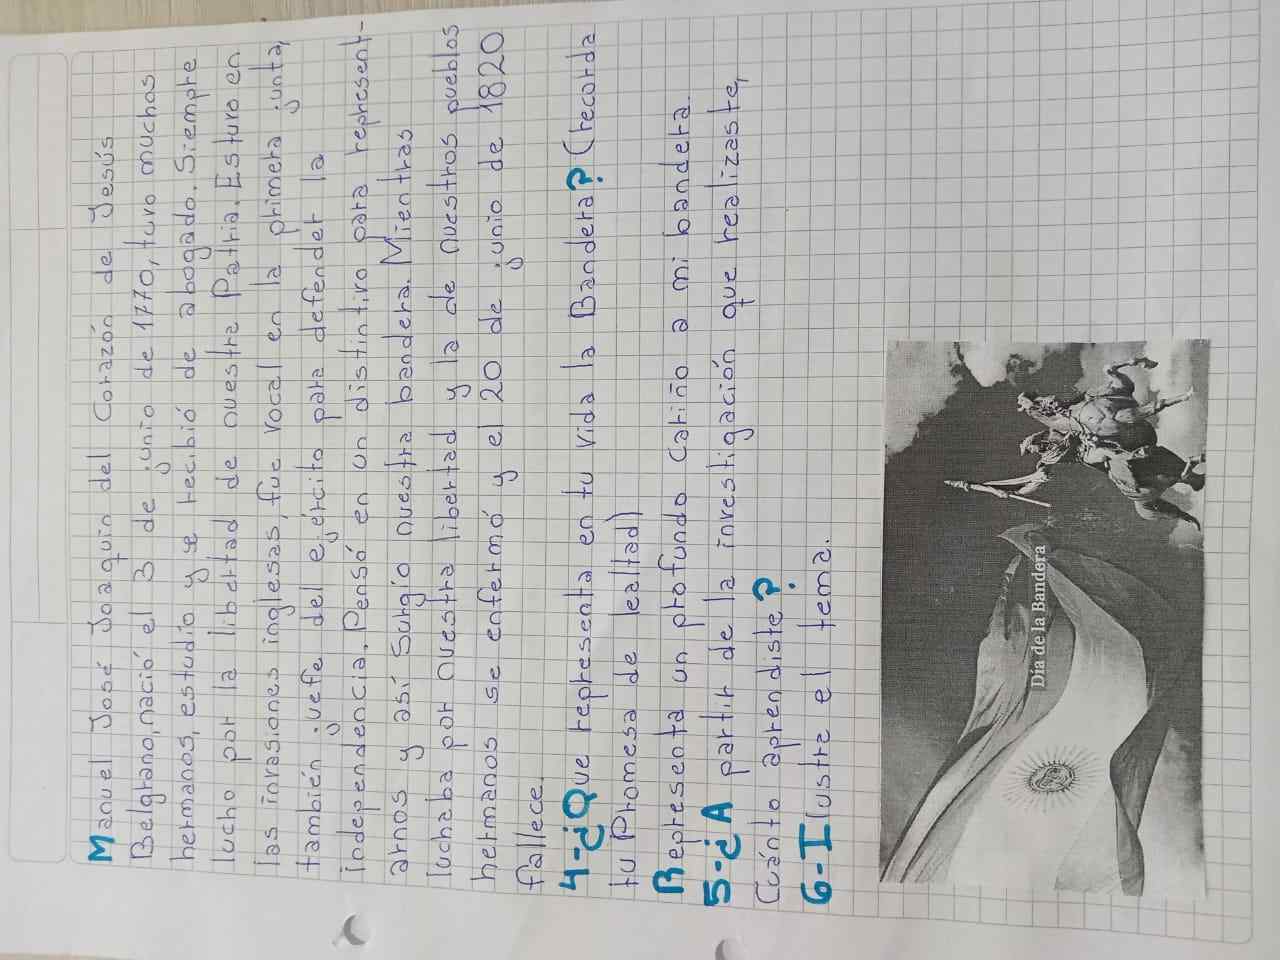 Manuel José Joaquin del Corazón de Jesús
Belgrano, nació el 3 de junio de 1770, tuvo muchos
hermanos, estudio y se recibió de abogado. Siempre
lucho por la libertad de nuestra Patria. Estuvo en
las invasiones inglesas, fue vocal en la primera junta,
también jefe del ejército para defender la
independencia. Pensó en un distintivo para represent-
arnos y así surgio nuestra bandera. Mientras
luchaba por nuestra libertad y la de nuestros pueblos
hermanos se enfermó y el 20 de junio de 1820
fallece.
4-¿Que representa en tu vida la Bandera? (recorda
tu Promesa de lealtad)
Representa un profundo cariño a mi bandera.
5-¿A partir de la investigación que realizaste,
Cuánto aprendiste?
6-Ilustre el tema.
Día de la Bandera